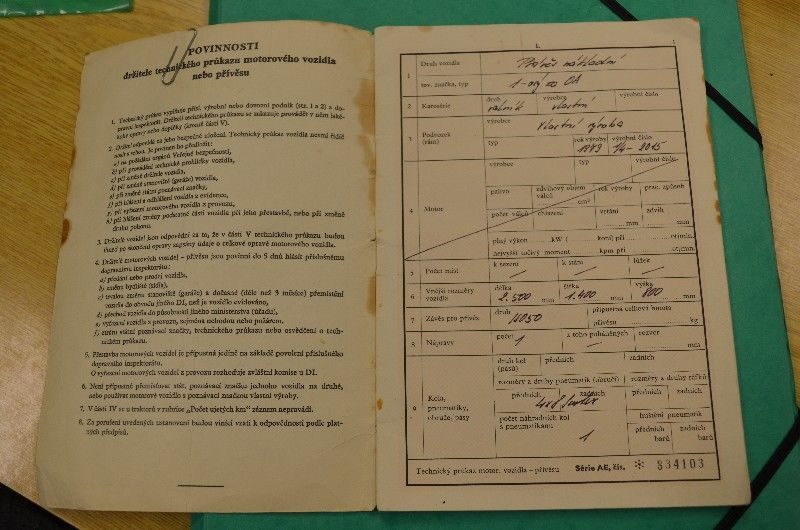 POVINNOSTI
držitele technického průkazu motorového vozidla
nebo přívěsu
1. Technický průkaz vyplňuje přísl. výrobní nebo dovozní podnik (str. 1 a 2) a do-
pravní inspektorát. Držiteli technického průkazu se zakazuje provádět v něm jaké-
koli opravy nebo doplňky (kromě části V).
2. Držitel odpovídá za jeho bezpečné uložení. Technický průkaz vozidla nesmí řidič
nosit s sebou. Je povinen ho předložit:
a) na požádání orgánů Veřejné bezpečnosti,
b) při provádění technické prohlídky vozidla,
c) při změně držitele vozidla,
d) při změně stanoviště (garáže) vozidla,
e) při změně státní poznávací značky,
f) při hlášení a odhlášení vozidla z evidence,
g) při vyřazení motorového vozidla z provozu,
h) při hlášení změny podstatné části vozidla při jeho přestavbě, nebo při změně
druhu pohonu.
3. Držitelé vozidel jsou odpovědní za to, že v části V technického průkazu budou
ihned po skončení opravy zapsány údaje o celkové opravě motorového vozidla.
4. Držitelé motorových vozidel – přívěsu jsou povinni do 5 dnů hlásit příslušnému
dopravnímu inspektorátu:
a) předání nebo prodej vozidla,
b) změnu bydliště (sídla),
c) trvalou změnu stanoviště (garáže) a dočasné (déle než 3 měsíce) přemístění
vozidla do obvodu jiného DI, než je vozidlo evidováno,
d) přechod vozidla do působnosti jiného ministerstva (úřadu),
e) vyřazení vozidla z provozu, zejména nehodou nebo požárem,
f) ztrátu státní poznávací značky, technického průkazu nebo osvědčení o tech-
nickém průkazu.
5. Přestavba motorových vozidel je přípustná jedině na základě povolení příslušného
dopravního inspektorátu.
O vyřazení motorových vozidel z provozu rozhoduje zvláštní komise u DI.
6. Není přípustné přemisťovat stát. poznávací značku jednoho vozidla na druhé,
nebo používat motorové vozidlo s poznávací značkou vlastní výroby.
7. V části IV se u traktorů v rubrice „Počet ujetých km" záznam neprovádí.
8. Za porušení uvedených ustanovení budou viníci vzati k odpovědnosti podle plat-
ných předpisů.
I.
1 Druh vozidla Přívěs nákladní
tov. značka, typ 1-osý
2 Karosérie druh valník výrobce vlastní výrobní číslo
3 Podvozek (rám) výrobce Vlastní výroba
typ rok výroby 1989 výrobní číslo 14-2015
4 Motor výrobce typ výrobní číslo
palivo zdvihový objem válců cm³ rok výroby prac. způsob
počet válců chlazení vrtání mm zdvih mm
plný výkon kW ( koní) při ot/min.
nejvyšší točivý moment kpm při ot/min.
5 Počet míst k sezení — k stání — lůžek —
6 Vnější rozměry vozidla délka 2.500 mm šířka 1.400 mm výška 800 mm
7 Závěs pro přívěs druh přípustná celková hmota přívěsu kg
8 Nápravy počet 1 z toho poháněných — rozvor — mm
9 Kola, pneumatiky, obruče, pasy
druh kol (pásů) předních zadních
rozměry a druhy pneumatik (obručí) rozměry a druhy ráfků
předních zadních předních zadních
počet náhradních kol s pneumatikami 1
huštění pneumatik
předních barů zadních barů
Technický průkaz motor. vozidla – přívěsu Série AE, čís. * 834103